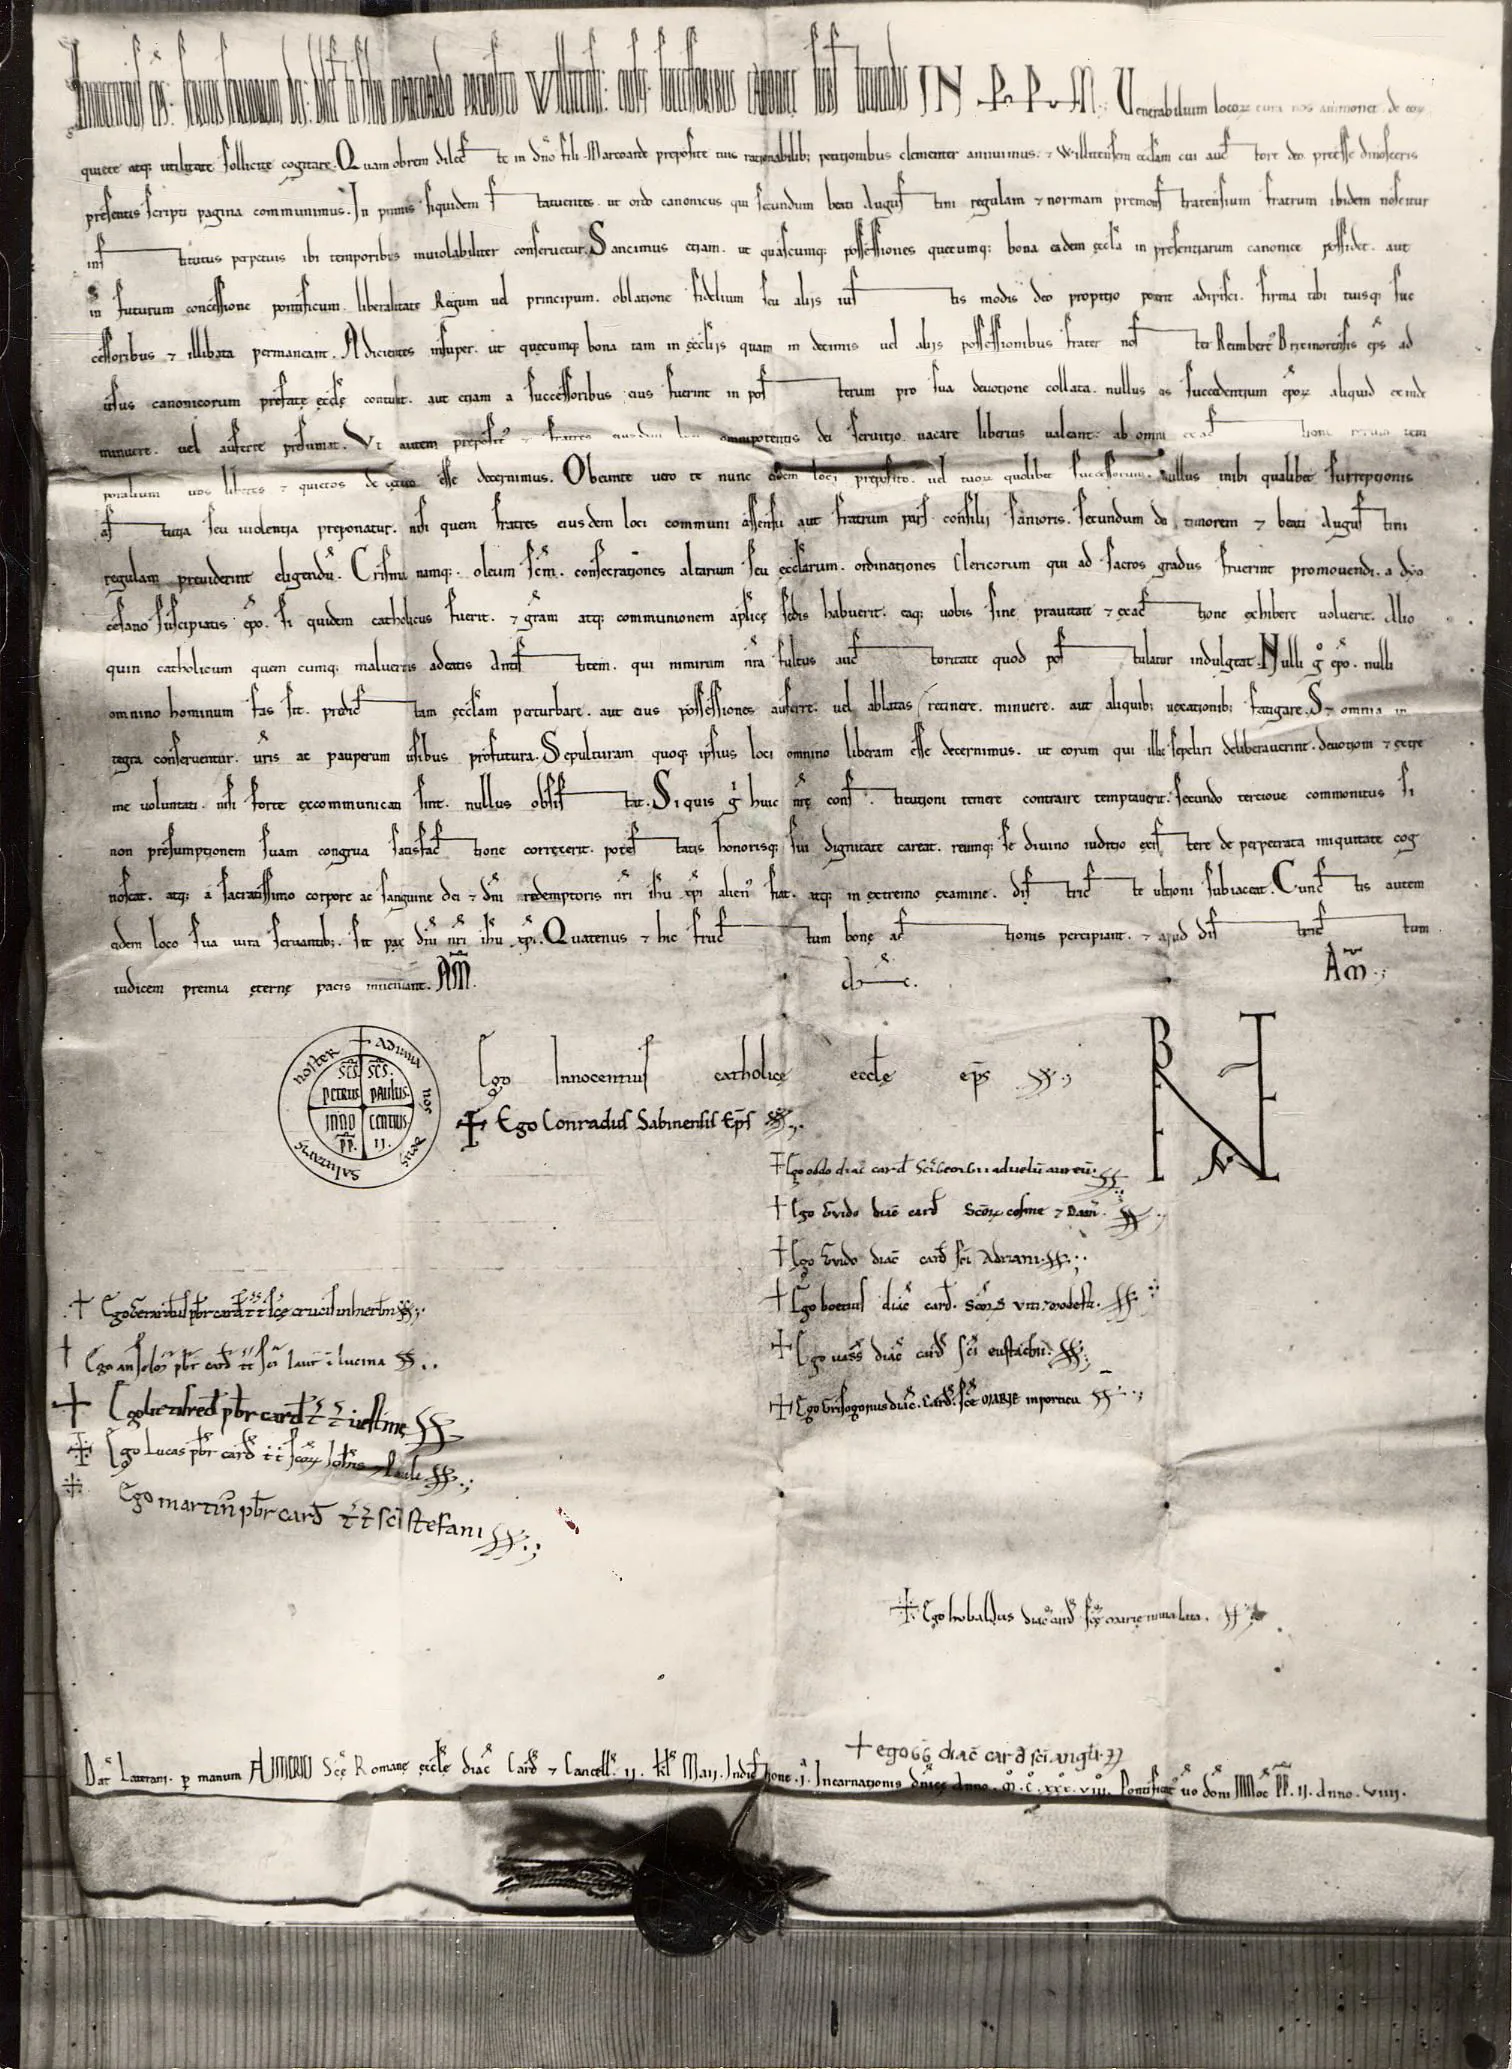 Innocentius ep̄s. servus servorum dei. dilect̄ in x̄p̄o filio Marcoardo preposito Williensi. eiusq; successoribus canonice sub st tuendis IN P P M. Venerabilium locoꝝ cura nos ammonet. de eoꝝ
quiete atq; utilitate sollicite cogitare. Quam obrem dilect te in dn̄o fili Marcoarde preposite tuis rationabilib; petitionibus clementer annuimus. ⁊ Willetensem eccl̄am cui auct tore deo. preesse dinosceris
presentis scripti pagina communimus. In primis siquidem st tatuentes. ut ordo canonicus qui secundum beati Augus tini regulam ⁊ normam premonst tratensium fratrum ibidem noscitur
inst titutus perpetuis ibi temporibus inviolabiliter conservetur. Sancimus etiam. ut quascumq; possessiones quecumq; bona eadem eccl̄a in presentiarum canonice possidet. aut
in futurum concessione pontificum. liberalitate Regum vel principum. oblatione fidelium seu aliis ius tis modis deo propitio poterit adipisci. firma tibi tuisq; suc
cessoribus ⁊ illibata permaneant. Adicientes insuper. ut quecumq; bona tam in ęccl̄iis quam in decimis vel aliis possessionibus frater nos ter Reimbert⁹ Brixinorensis ep̄s ad
usus canonicorum prefatę ęccl̄ę contulit. aut etiam a successoribus eius fuerint in pos terum pro sua devotione collata. nullus os succedentium ep̄oꝝ aliquid exinde
minuere. vel auferre presumat. Ut autem preposit⁹ ⁊ fratres eiusdem loci omnipotentis dei servitio vacare liberius valeant. ab omni exact tione rerum tem
poralium vos liberos ⁊ quietos de cetero esse decernimus. Obeunte vero te nunc eidem loci preposito. vel tuoꝝ quolibet successorum. nullus inibi qualibet surreptionis
as tutia seu violentia preponatur. nisi quem fratres eiusdem loci communi assensu aut fratrum pars consilii sanioris. secundum dei timorem ⁊ beati Augus tini
regulam previderint eligendū. Crisma namq;. oleum sc̄m. consecrationes altarium seu ęccl̄arum. ordinationes Clericorum qui ad sacros gradus fuerint promovendi. a dyo
cesano suscipiatis ep̄o. si quidem catholicus fuerit. ⁊ gr̄am atq; communionem apl̄icę sedis habuerit. eaq; vobis sine pravitate ⁊ exact tione exhibere voluerit. Alio
quin catholicum quem cumq; malueritis adeatis Antis titem. qui nimirum nr̄a fultus auct toritate quod pos tulatur indulgeat. Nulli g̊ ep̄o. nulli
omnino hominum fas sit. predict tam ęccl̄am perturbare. aut eius possessiones auferre. vel ablatas retinere. minuere. aut aliquib; vexationib; fatigare. S; ⁊ omnia in
tegra conserventur. vr̄is ac pauperum usibus profutura. Sepulturam quoq; ipsius loci omnino liberam esse decernimus. ut eorum qui illic sepeliri deliberaverint. devotioni ⁊ extre
me voluntati. nisi forte excommunicati sint. nullus obsis tat. Si quis g̊ huic nr̄ę cons titutioni temere contraire temptaverit. secundo tertiove commonitus si
non presumptionem suam congrua satisfact tione correxerit. potes tatis honorisq; sui dignitate careat. reumq; se divino iuditio exis tere de perpetrata iniquitate cog
noscat. atq; a sacratissimo corpore ac sanguine dei ⁊ dn̄i redemptoris nr̄i ih̄u xp̄i alien⁹ fiat. atq; in extremo examine. dis trict te ultioni subiaceat. Cunct tis autem
eidem loco sua iura servantib;. sit pax dn̄i nr̄i ih̄u xp̄i. Quatenus ⁊ hic fruct tum bonę act tionis percipiant. ⁊ apud dis trict tum
iudicem premia ęternę pacis inveniant. AM̄. AM̄.
Adiuva nos deus salutaris noster
SC̄S PETRUS SC̄S PAULUS. INNO CENTIUS. PP̄ II.
Ego Innocentius catholicę eccl̄ę ep̄s
Ego Conradus Sabinensis Ep̄s
Ego oddo diac̄ card̄ Sc̄i Georgii ad velū aureū.
Ego Gvido diac̄ card̄ Sc̄oꝝ cosme ⁊ Dam̄.
Ego Gvido diac̄ card̄ sc̄i Adriani.
Ego Gerardus pb̄r card̄ tt sc̄ę crucis in hierl̄m
Ego boetius diac̄ card̄. Sc̄oꝝ viti ⁊ modesti.
Ego anselm⁹ pb̄r card̄ tt sc̄i laur̄ ī lucina
Ego vass̄ diac̄ card̄ sc̄i eustachii.
Ego litifred̄ pb̄r card̄ tt vestine
Ego Grisogonus diac̄. card̄. sc̄e MARIE in porticu
Ego Lucas pb̄r card̄ tt sc̄oꝝ Ioh̄is ⁊ Pauli
Ego martin⁹ pb̄r card̄ tt sc̄i stefani
Ego hobaldus diac̄ card̄ sc̄ę marię in via lata.
ego GG diac̄ card̄ sc̄i angl̄i.
Dat̄ Laterani. p̱ manum AIMERICI Sc̄ę Romanę ęccl̄ę diac̄ Card̄ ⁊ Cancell̄. II. kl̄ Maii. Indict tione. I. Incarnationis dn̄icę Anno. M̊. C̊. XXX̊. VIII̊. Pontificat⁹ v̊o dom̄ INNOC̄ PP̄. II. Anno. VIIII.